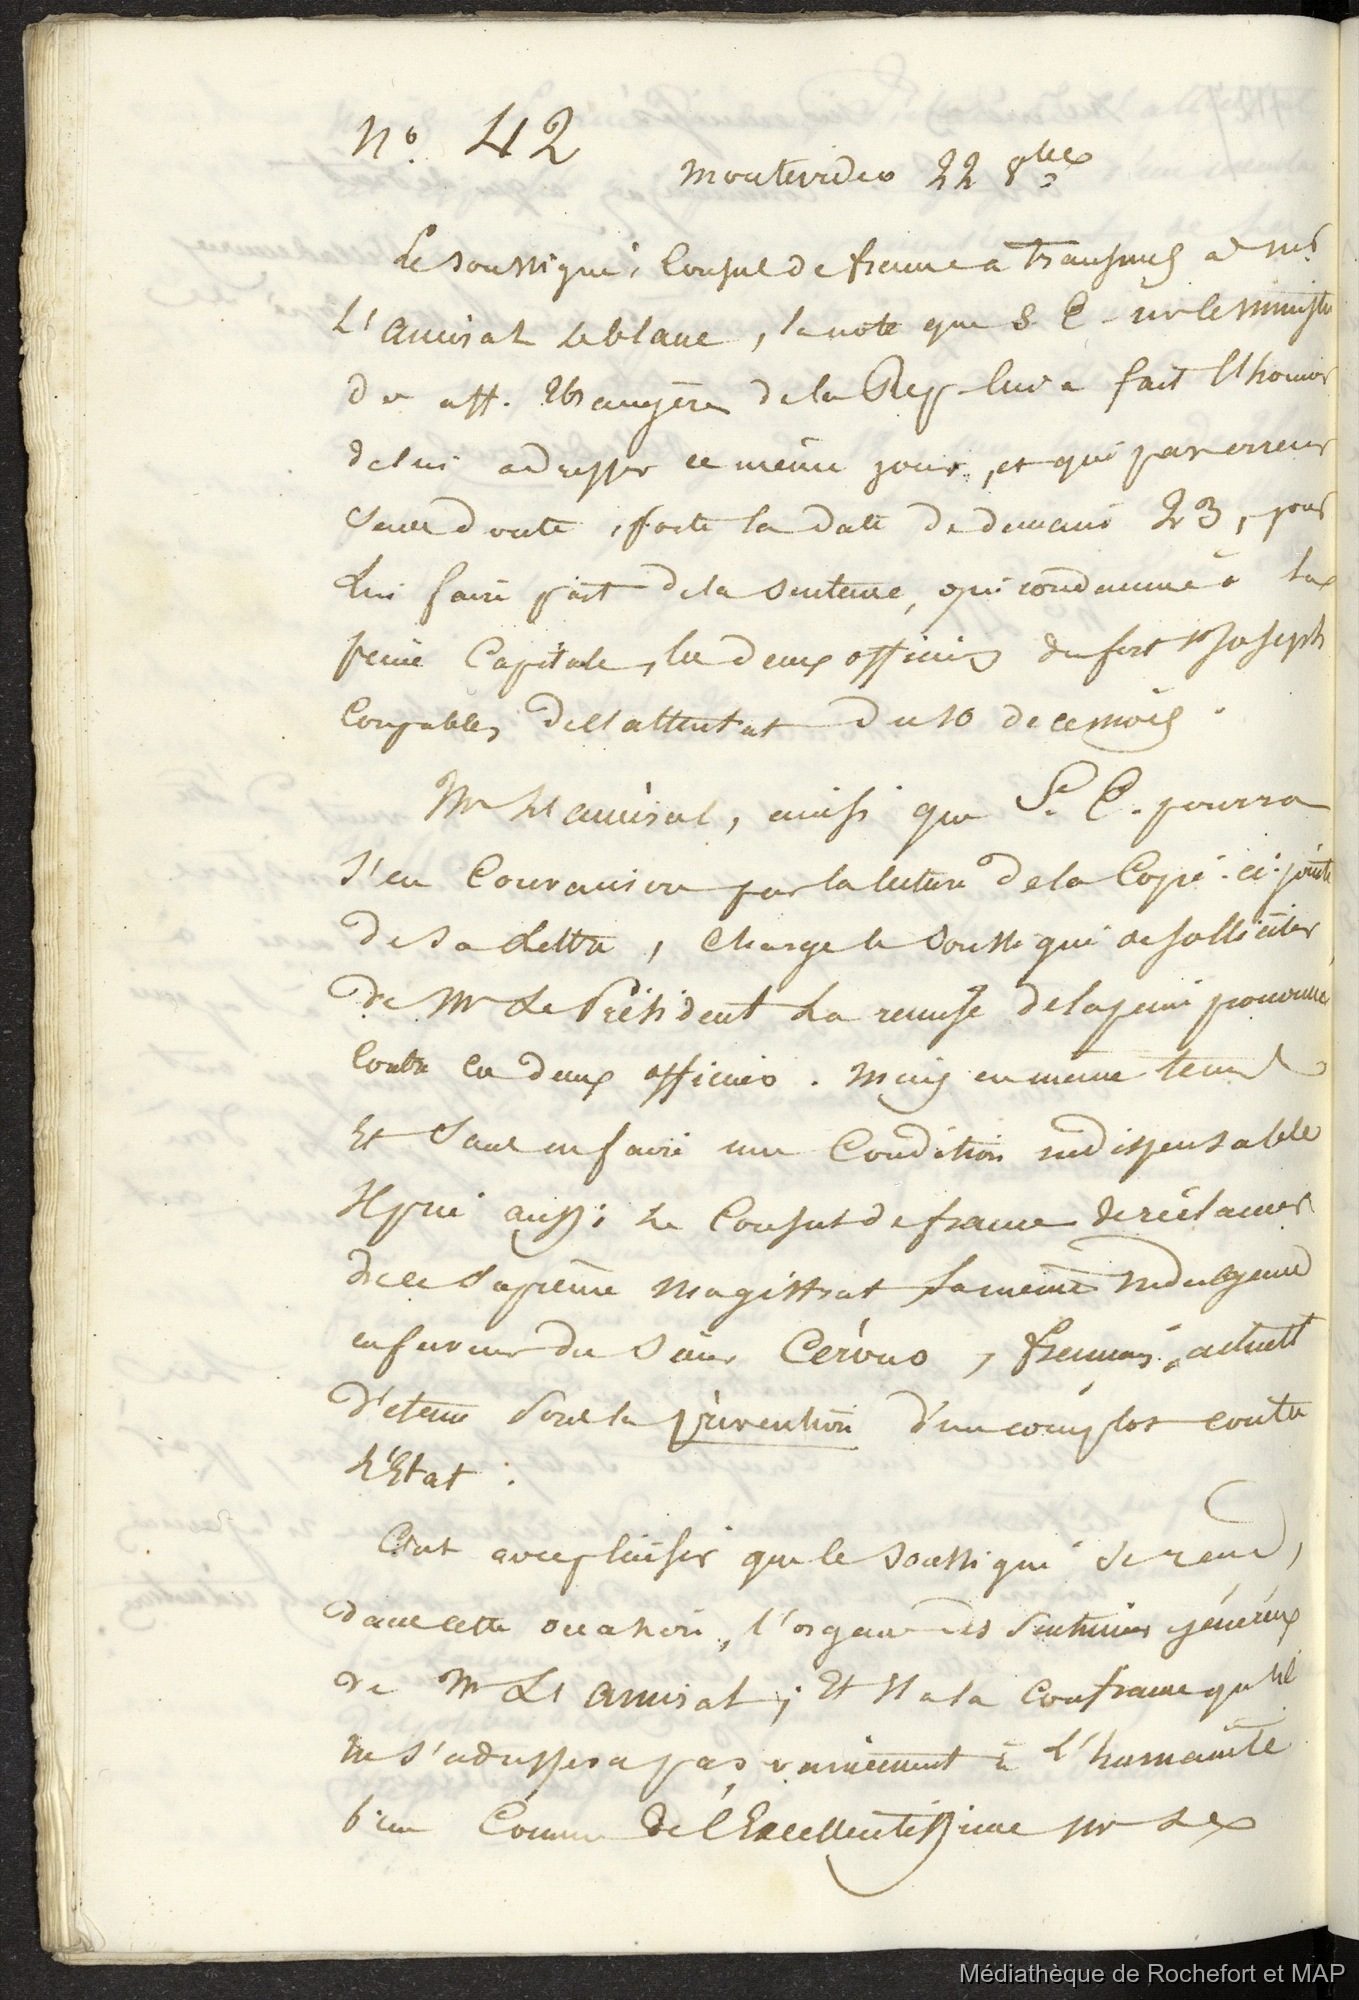 N° 42
Montevideo 22 8bre
Le soussigné, Consul de france a transmis à Mr
L'amiral Leblanc, la note que S. E. Mr le Ministre
des aff. Etrangères de la Rep. lui a fait l'honneur
de lui adresser ce même jour, et qui par erreur
sans doute, porte la date de demain 23, pour
Lui faire part de la sentence, qui condamne à la
peine Capitale, les deux officiers du fort St Joseph
Coupables de l'attentat du 10 de ce mois.
Mr L'amiral, ainsi que S. E. pourra
s'en Convaincre par la lecture de la Copie ci-jointe
de sa Lettre, Charge le soussigné de solliciter
de Mr Le Président La remise de la peine prononcée
Contre ces deux officiers. Mais en même temps
Et Sans en faire une Condition indispensable
Il prie aussi le Consul de france de réclamer
de ce Suprême Magistrat la même Indulgence
en faveur du Sieur Cervus, français, actuellt
détenu sous la prévention d'un complot contre
L'Etat.
C'est avec plaisir que le soussigné se rend,
dans cette occasion, l'organe des sentimens généreux
de Mr L'amiral; Et Il a la Confiance qu'il
ne s'adressera pas vainement à L'humanité
bien Connue de l'Excellentissime Mr Le
Médiathèque de Rochefort et MAP